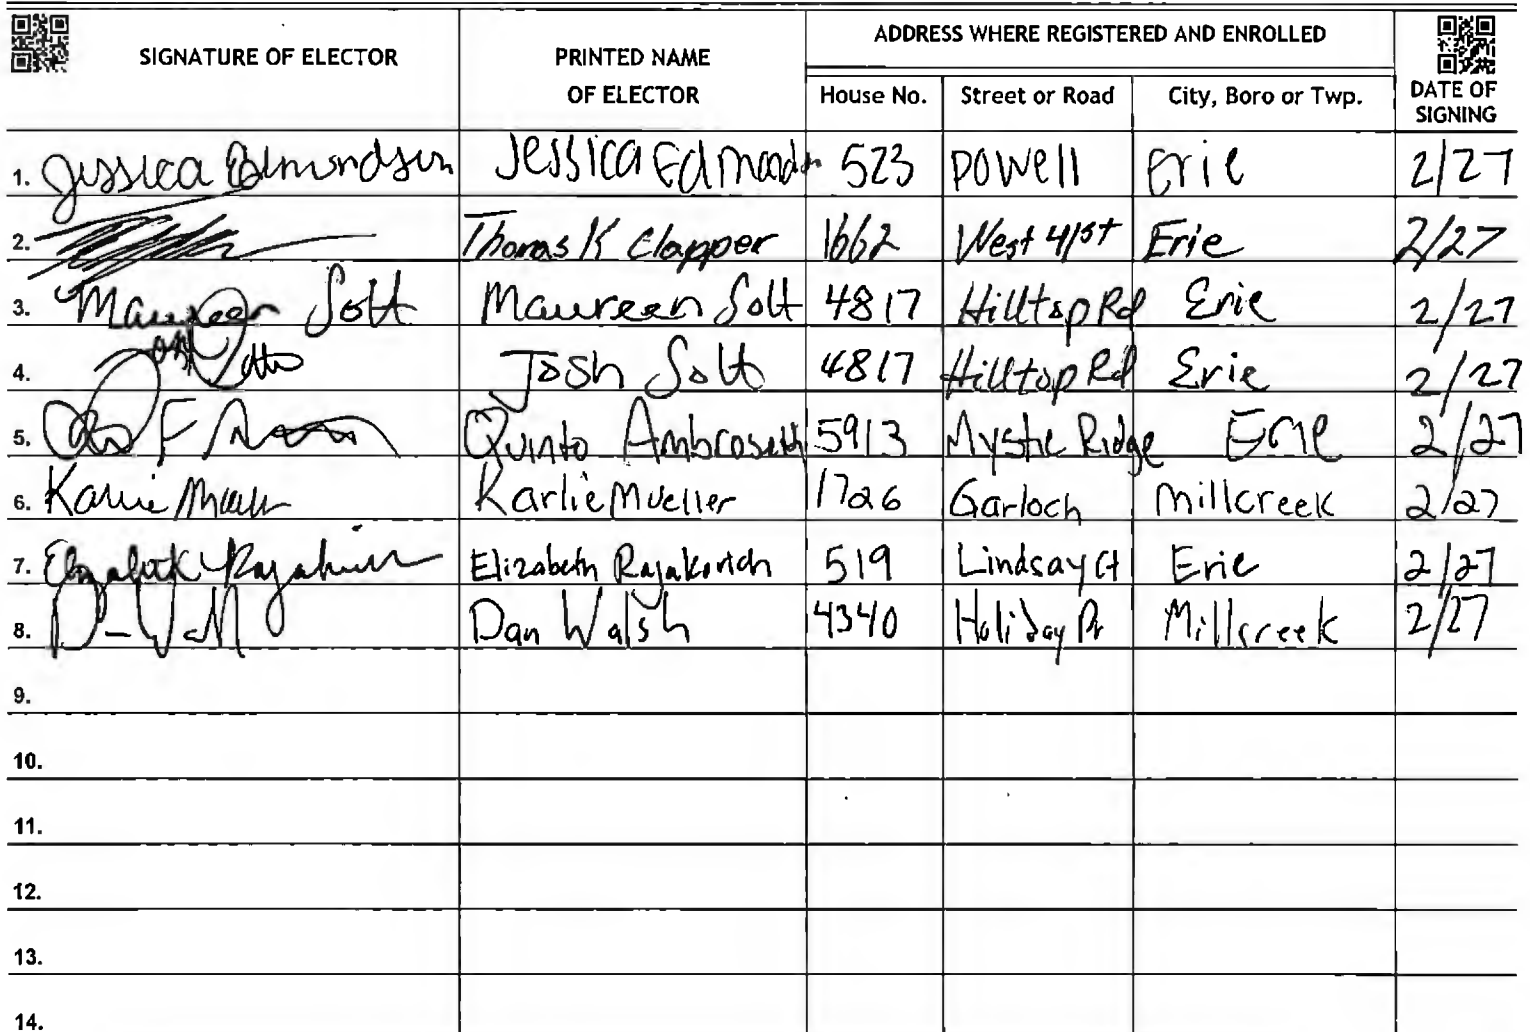 SIGNATURE OF ELECTOR PRINTED NAME OF ELECTOR ADDRESS WHERE REGISTERED AND ENROLLED DATE OF SIGNING
House No. Street or Road City, Boro or Twp.
1. Jessica Edmondson Jessica Edmondson 523 Powell Erie 2/27
2. Thomas K Clapper 1662 West 41st Erie 2/27
3. Maureen Solt Maureen Solt 4817 Hilltop Rd Erie 2/27
4. Josh Solt 4817 Hilltop Rd Erie 2/27
5. Quinto 5913 Mystic Ridge Erie 2/27
6. Karlie Mueller 1726 Garloch Millcreek 2/27
7. Elizabeth Elizabeth Rajakovich 519 Lindsay Ct Erie 2/27
8. Dan Walsh 4340 Holiday Dr Millcreek 2/27
9.
10.
11.
12.
13.
14.